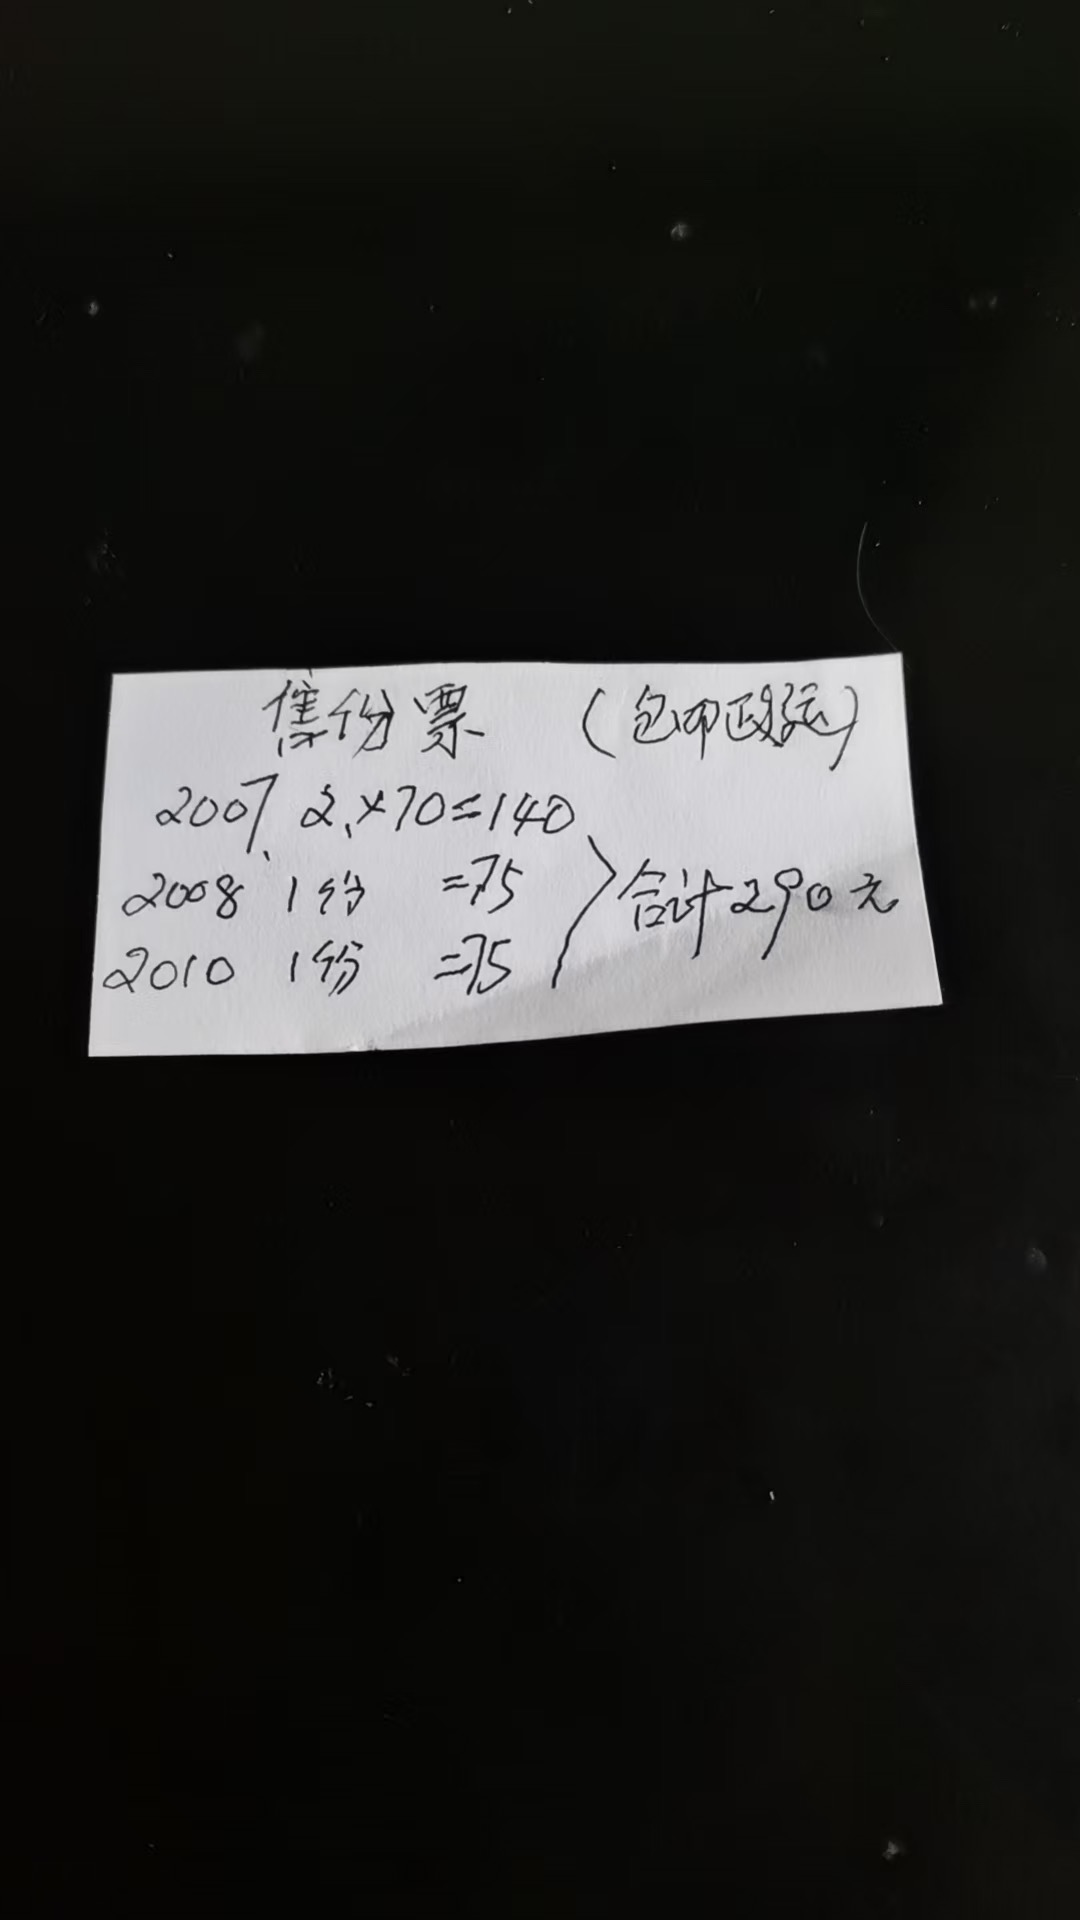 售份票 (包邮政运)
2007. 2.×70=140
2008 1份 =75
2010 1份 =75
合计290元